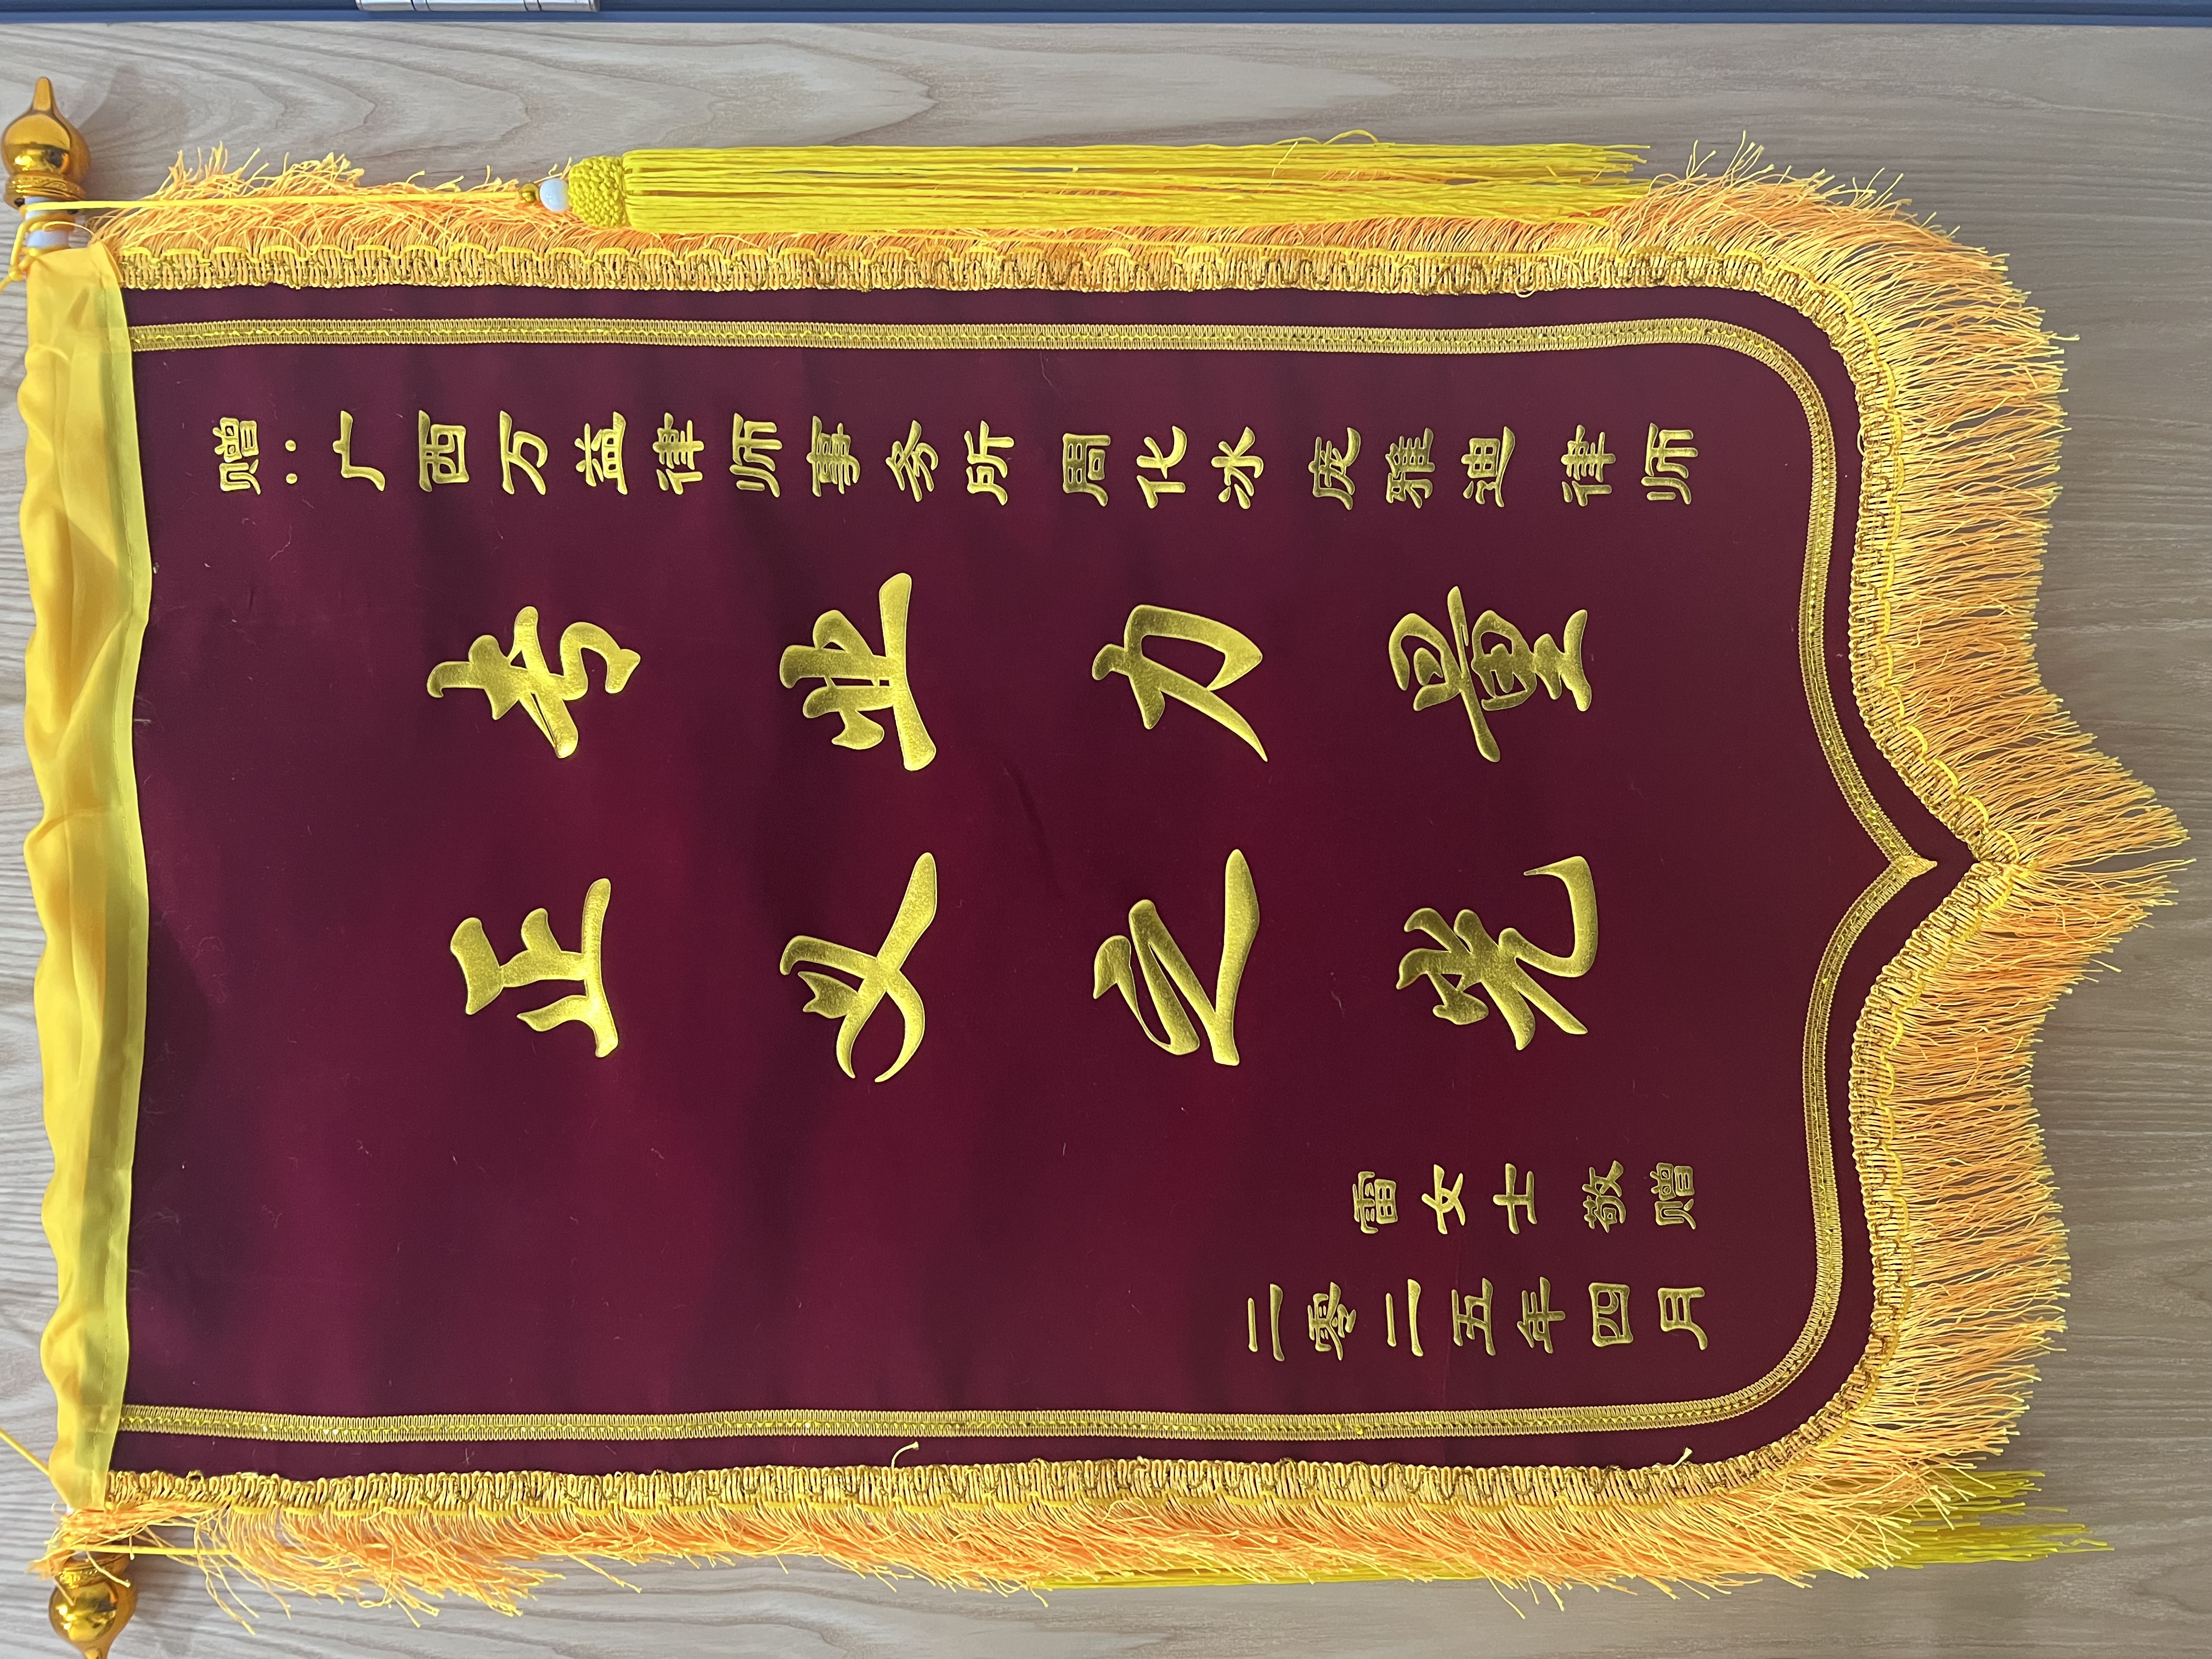 赠：广西万益律师事务所 周化冰 庞雅迪 律师
专业力量
正义之光
雷女士 敬赠
二零二五年四月